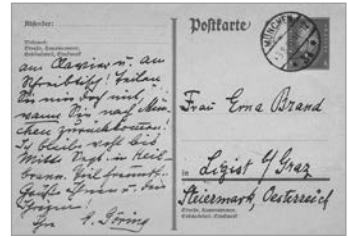 Absender:
Wohnort:
Straße, Hausnummer,
Gebäudeteil, Stockwerk
am Clavier u. am
Schreibtisch! Teilen
Sie mir doch mit,
wann Sie nach Mün-
chen zurückkommen!
Ich bleibe wohl bis
Mitte Sept. in Heil-
brunn. Viel freundl.
Grüße Ihnen u. den
Ihrigen!
Ihr A. Döring
Postkarte
MÜNCHEN
Frau Erna Brand
in Ligist b/ Graz
Steiermark, Oesterreich
Straße, Hausnummer,
Gebäudeteil, Stockwerk